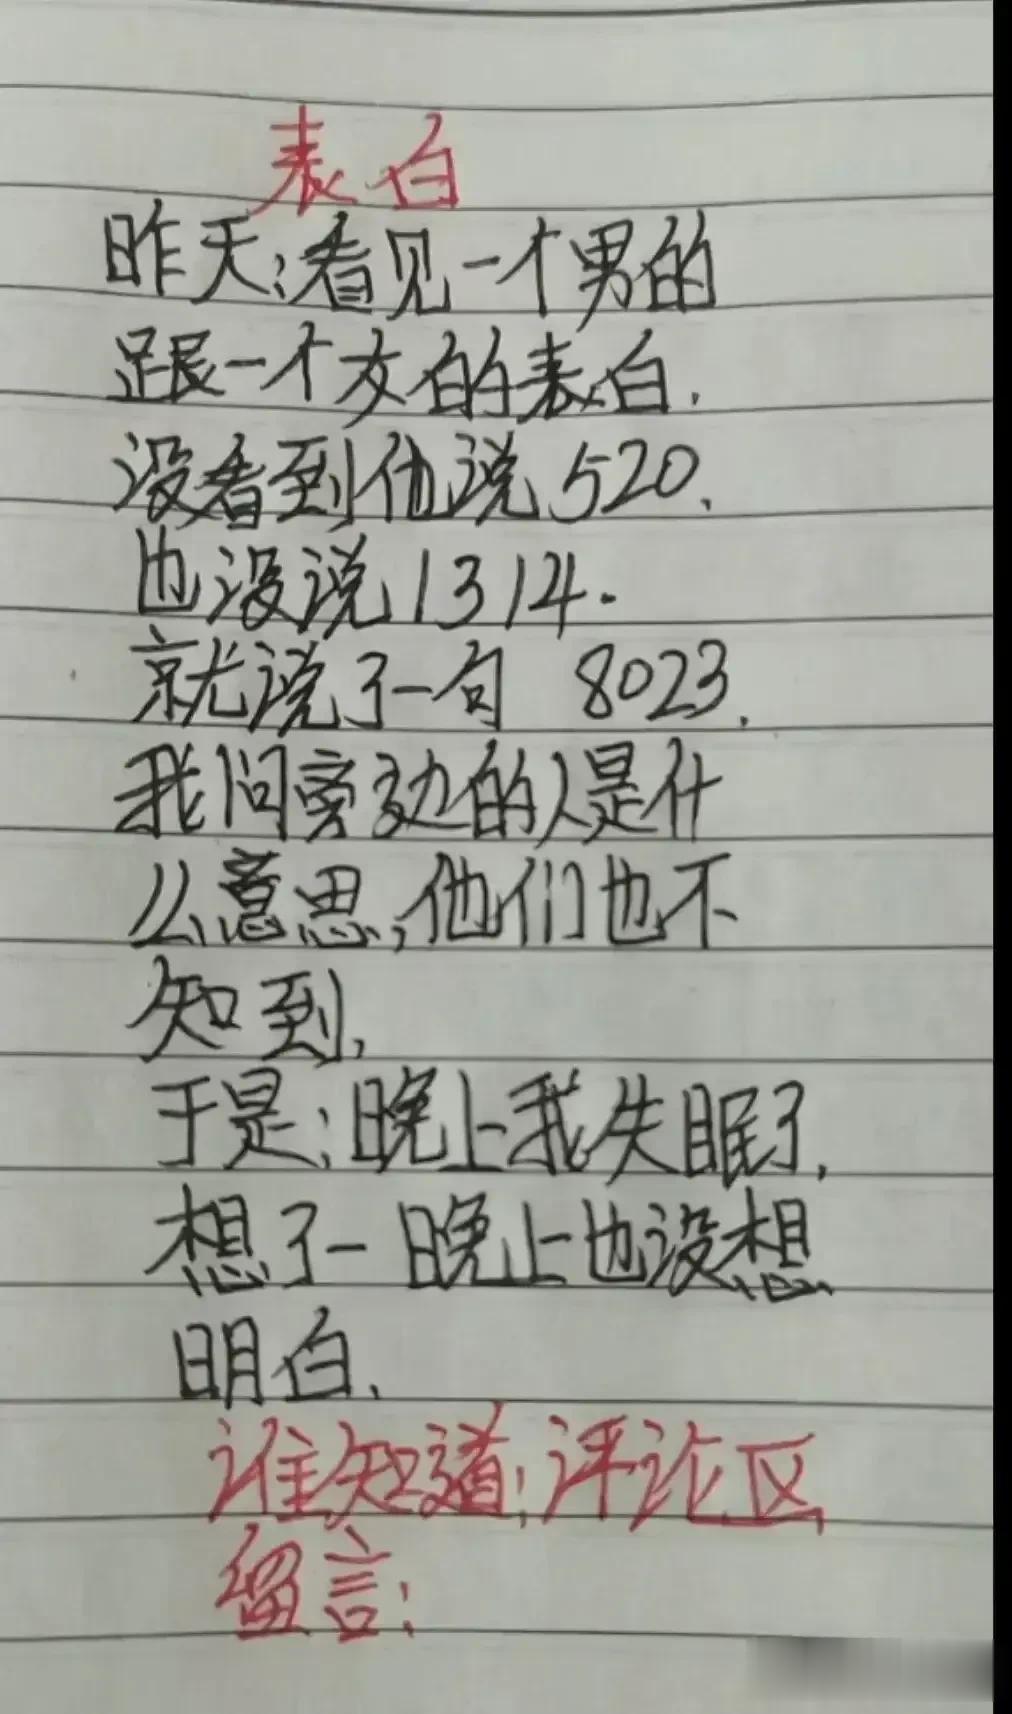 表白
昨天;看见一个男的
跟一个女的表白.
没看到他说520.
也没说1314.
就说了一句 8023.
我问旁边的人是什
么意思,他们也不
知到,
于是;晚上我失眠了,
想了一晚上也没想
明白.
谁知道;评论区
留言;